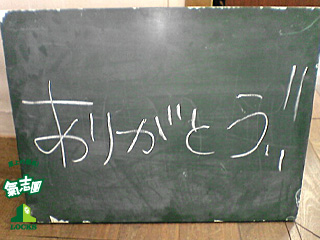 ありがとう!!
氣志團
LOCKS